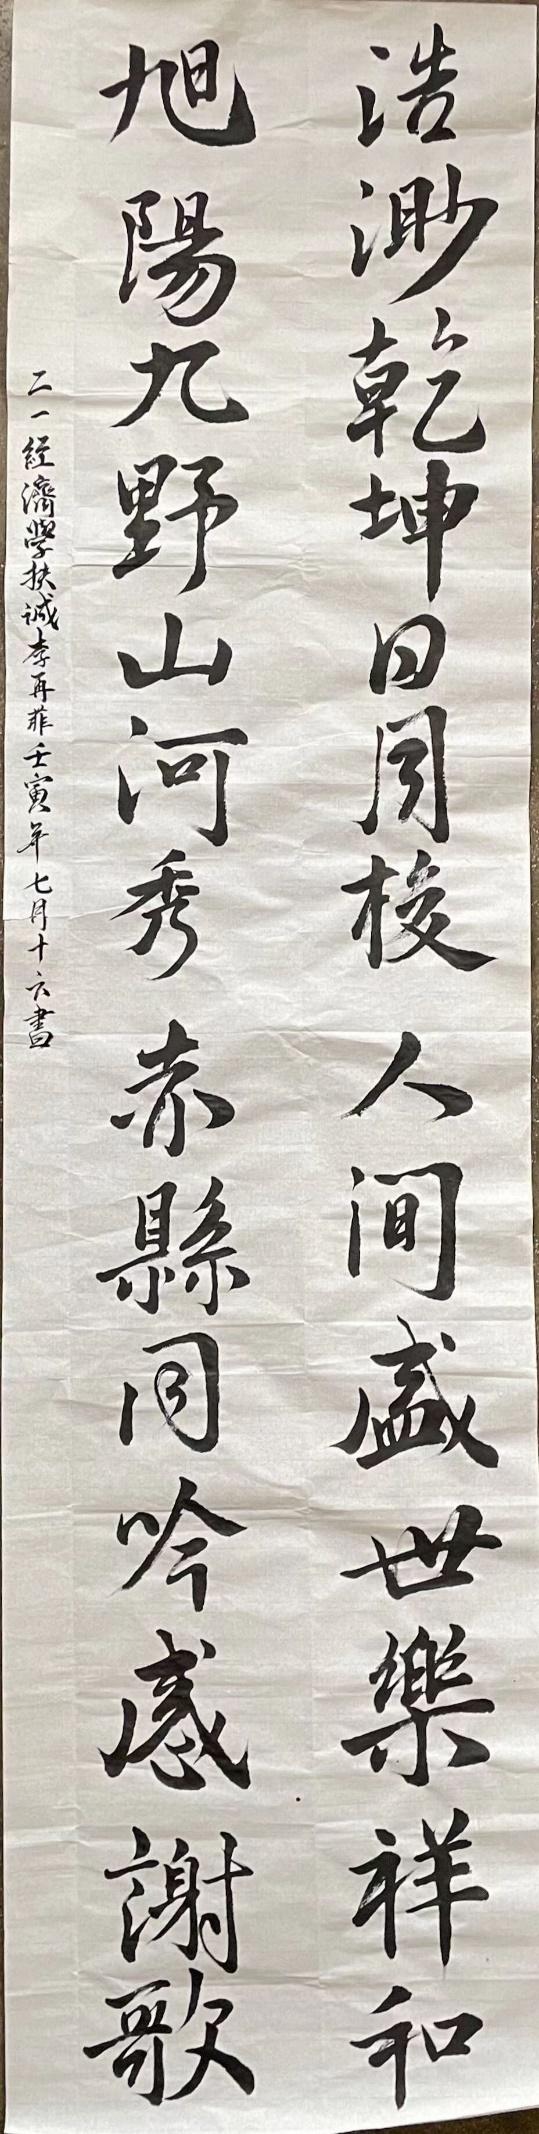 浩渺乾坤日月梭 人間盛世樂祥和
旭陽九野山河秀 赤縣同吟感謝歌
二一経濟學扶誠李再菲壬寅年七月十六書